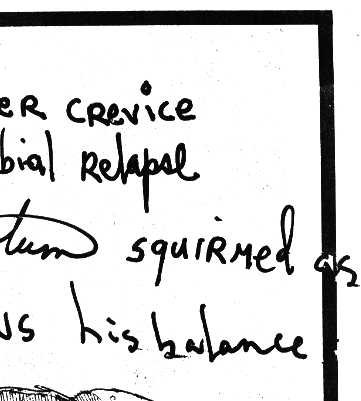 er crevice
bial relapse
tum squirmed as
ws his balance